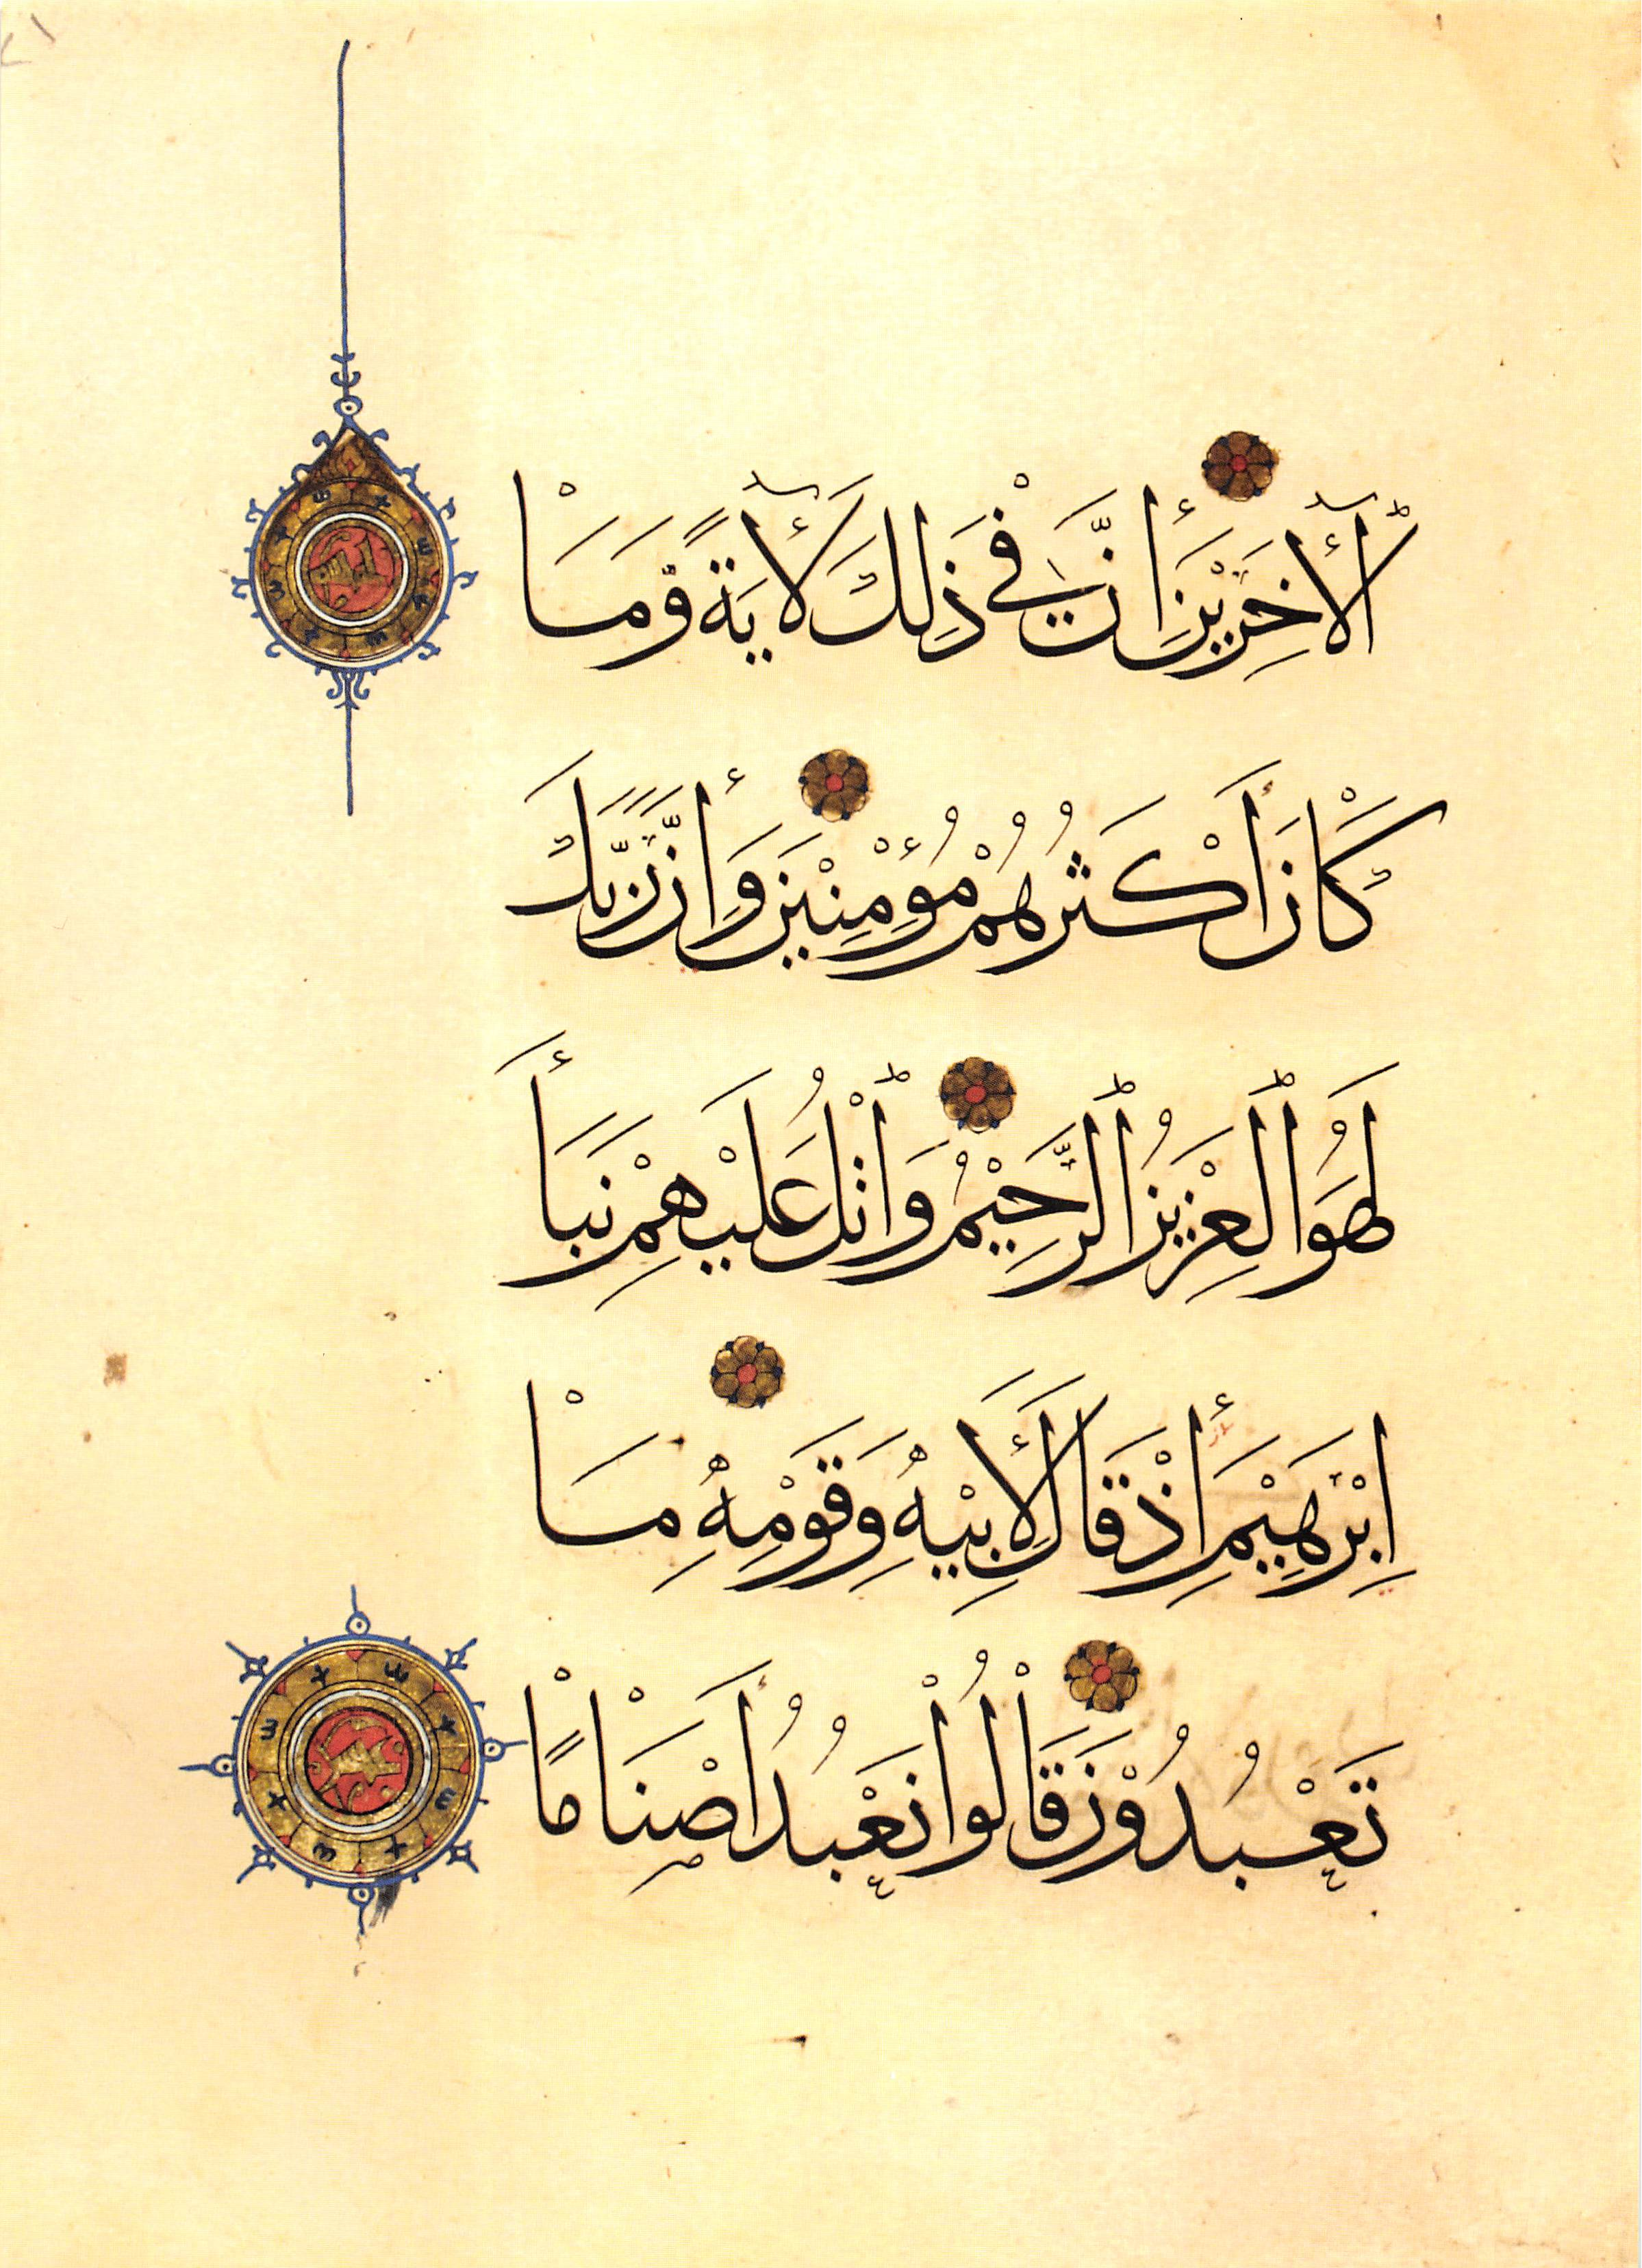 ٱلْأٓخَرِيْنَ إِنَّ فِيْ ذَٰلِكَ لَأٓيَةً وَّمَا
كَانَ أَكْثَرُهُمْ مُؤْمِنِيْنَ وَإِنَّ رَبَّكَ
لَهُوَ ٱلْعَزِيْزُ ٱلرَّحِيْمُ وَٱتْلُ عَلَيْهِمْ نَبَأَ
إِبْرَهِيْمَ إِذْ قَالَ لِأَبِيْهِ وَقَوْمِهِ مَا
تَعْبُدُوْنَ قَالُوْا نَعْبُدُ أَصْنَامًا